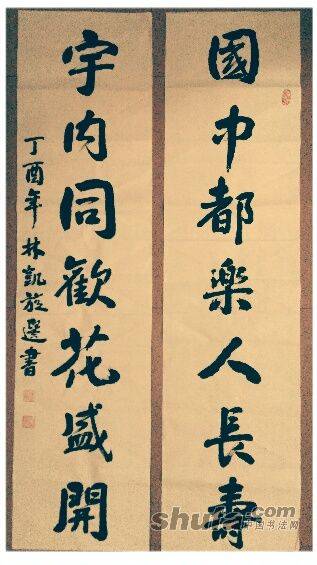 國中都樂人長壽
宇內同歡花盛開
丁酉年 林凱旋選書
shufa.com
中国书法网